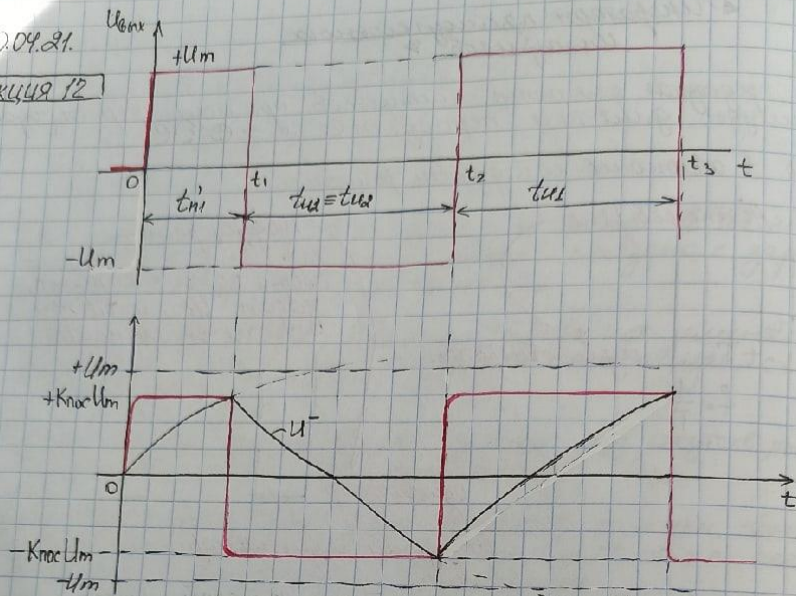 0.04.21.
кция 12
Uвых
+Um
0
t₁
t₂
t₃
t
tи2≡tи2
tи1
-Um
+Um
+KпосUm
U⁻
0
t
-KпосUm
-Um